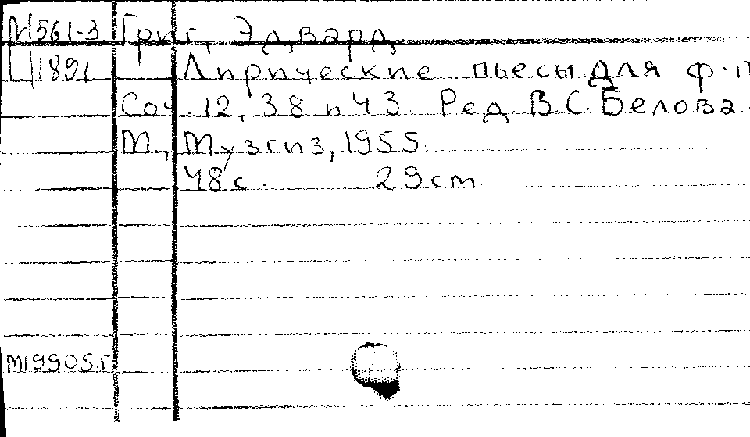 М561-3 Григ, Эдвард
Ц1891 Лирические пьесы для ф-п
Соч. 12, 38 и 43. Ред. В.С. Белова.
М., Музгиз, 1955.
48 с. 29 cm
М19905г